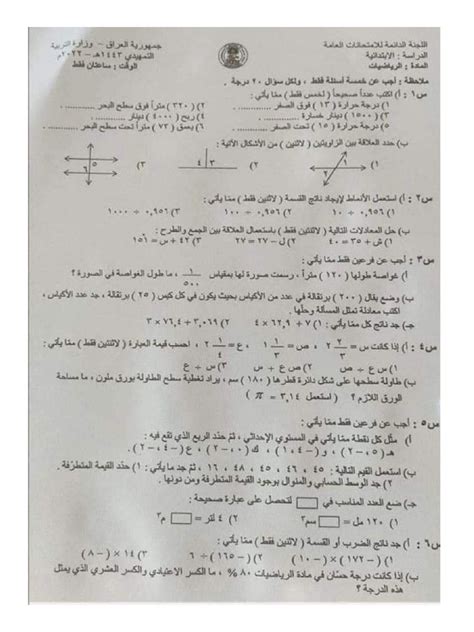 اللجنة الدائمة للامتحانات العامة
الدراسة : الابتدائية
المادة : الرياضيات
جمهورية العراق - وزارة التربية
التمهيدي ١٤٤٣هـ - ٢٠٢٢م
الوقت : ساعتان فقط
ملاحظة : أجب عن خمسة أسئلة فقط ، ولكل سؤال ٢٠ درجة .
س١ : أ) اكتب عدداً صحيحاً ( لخمس فقط ) ممّا يأتي :
١) درجة حرارة ( ١٣ ) فوق الصفر .......... ٢) ( ٣٢٠ ) متراً فوق سطح البحر ..........
٣) ( ١٥٠٠ ) دينار خسارة .......... ٤) ربح ( ٤٠٠٠ ) دينار ..........
٥) درجة حرارة ( ١٥ ) تحت الصفر .......... ٦) بعمق ( ٧٢ ) متراً تحت سطح البحر ..........
ب) حدد العلاقة بين الزاويتين ( لاثنين فقط ) من الأشكال الآتية :
١) ٢) ٤ ٣ ٣) ٥ ٦
س٢ : أ) استعمل الأنماط لإيجاد ناتج القسمة ( لاثنين فقط ) ممّا يأتي :
١) ٠,٩٥٦ ÷ ١٠ ٢) ٠,٩٥٦ ÷ ١٠٠ ٣) ٠,٩٥٦ ÷ ١٠٠٠
ب) حل المعادلات التالية ( لاثنتين فقط ) باستعمال العلاقة بين الجمع والطرح :
١) ش + ٣٥ = ٤٠ ٢) ل - ٢٧ = ٢٠ ٣) ٤٢ + س = ١٥١
س٣ : أجب عن فرعين فقط ممّا يأتي :
أ) غواصة طولها ( ١٢٠ ) متراً ، رسمت صورة لها بمقياس ١/٥٠٠ ، ما طول الغواصة في الصورة ؟
ب) وضع بقال ( ٢٠٠ ) برتقالة في عدد من الأكياس بحيث يكون في كل كيس ( ٢٥ ) برتقالة ، جد عدد الأكياس ،
اكتب معادلة تمثل المسألة وحلّها .
ج) جد ناتج كل ممّا يأتي : ١) ٧ + ٦٢,٩ × ٤ ٢) ٣,٠٦٩ + ٧٦,٤ × ٣
س٤ : أ) إذا كانت س = ٢ ٢/٣ ، ص = ٣ ١/٣ ، ع = ٢ ١/٤ ، احسب قيمة العبارة ( لاثنين فقط ) ممّا يأتي :
١) س ع ÷ ص ٢) ص ع ÷ س ٣) س ÷ ع
ب) طاولة سطحها على شكل دائرة قطرها ( ١٨٠ ) سم ، يراد تغطية سطح الطاولة بورق ملون ، ما مساحة
الورق اللازم ؟ ( استعمل ٣,١٤ = π )
س٥ : أجب عن فرعين فقط ممّا يأتي :
أ) مثّل كل نقطة ممّا يأتي في المستوي الإحداثي ، ثمّ حدّد الربع الذي تقع فيه :
ب) استعمل القيم التالية : ٤٥ ، ٤٦ ، ٤٨ ، ٤٦ ، ١٦ ، ثمّ جد ما يأتي : ١) حدّد القيمة المتطرّفة .
٢) جد الوسط الحسابي والمنوال بوجود القيمة المتطرّفة ومن دونها .
جـ) ضع العدد المناسب في □ لتحصل على عبارة صحيحة :
١) ١٢٠ مل = □ سم٣ ٢) ٤ لتر = □ م٣
س٦ : أ) جد ناتج الضرب أو القسمة ( لاثنين فقط ) ممّا يأتي :
١) (-١٧٢) × (-١٠) ٢) (-١٦٥) ÷ ٦ ٣) ١٤ × (-٨)
ب) إذا كانت درجة حسّان في مادة الرياضيات ٨٠% ، ما الكسر الاعتيادي والكسر العشري الذي يمثل
هذه الدرجة ؟